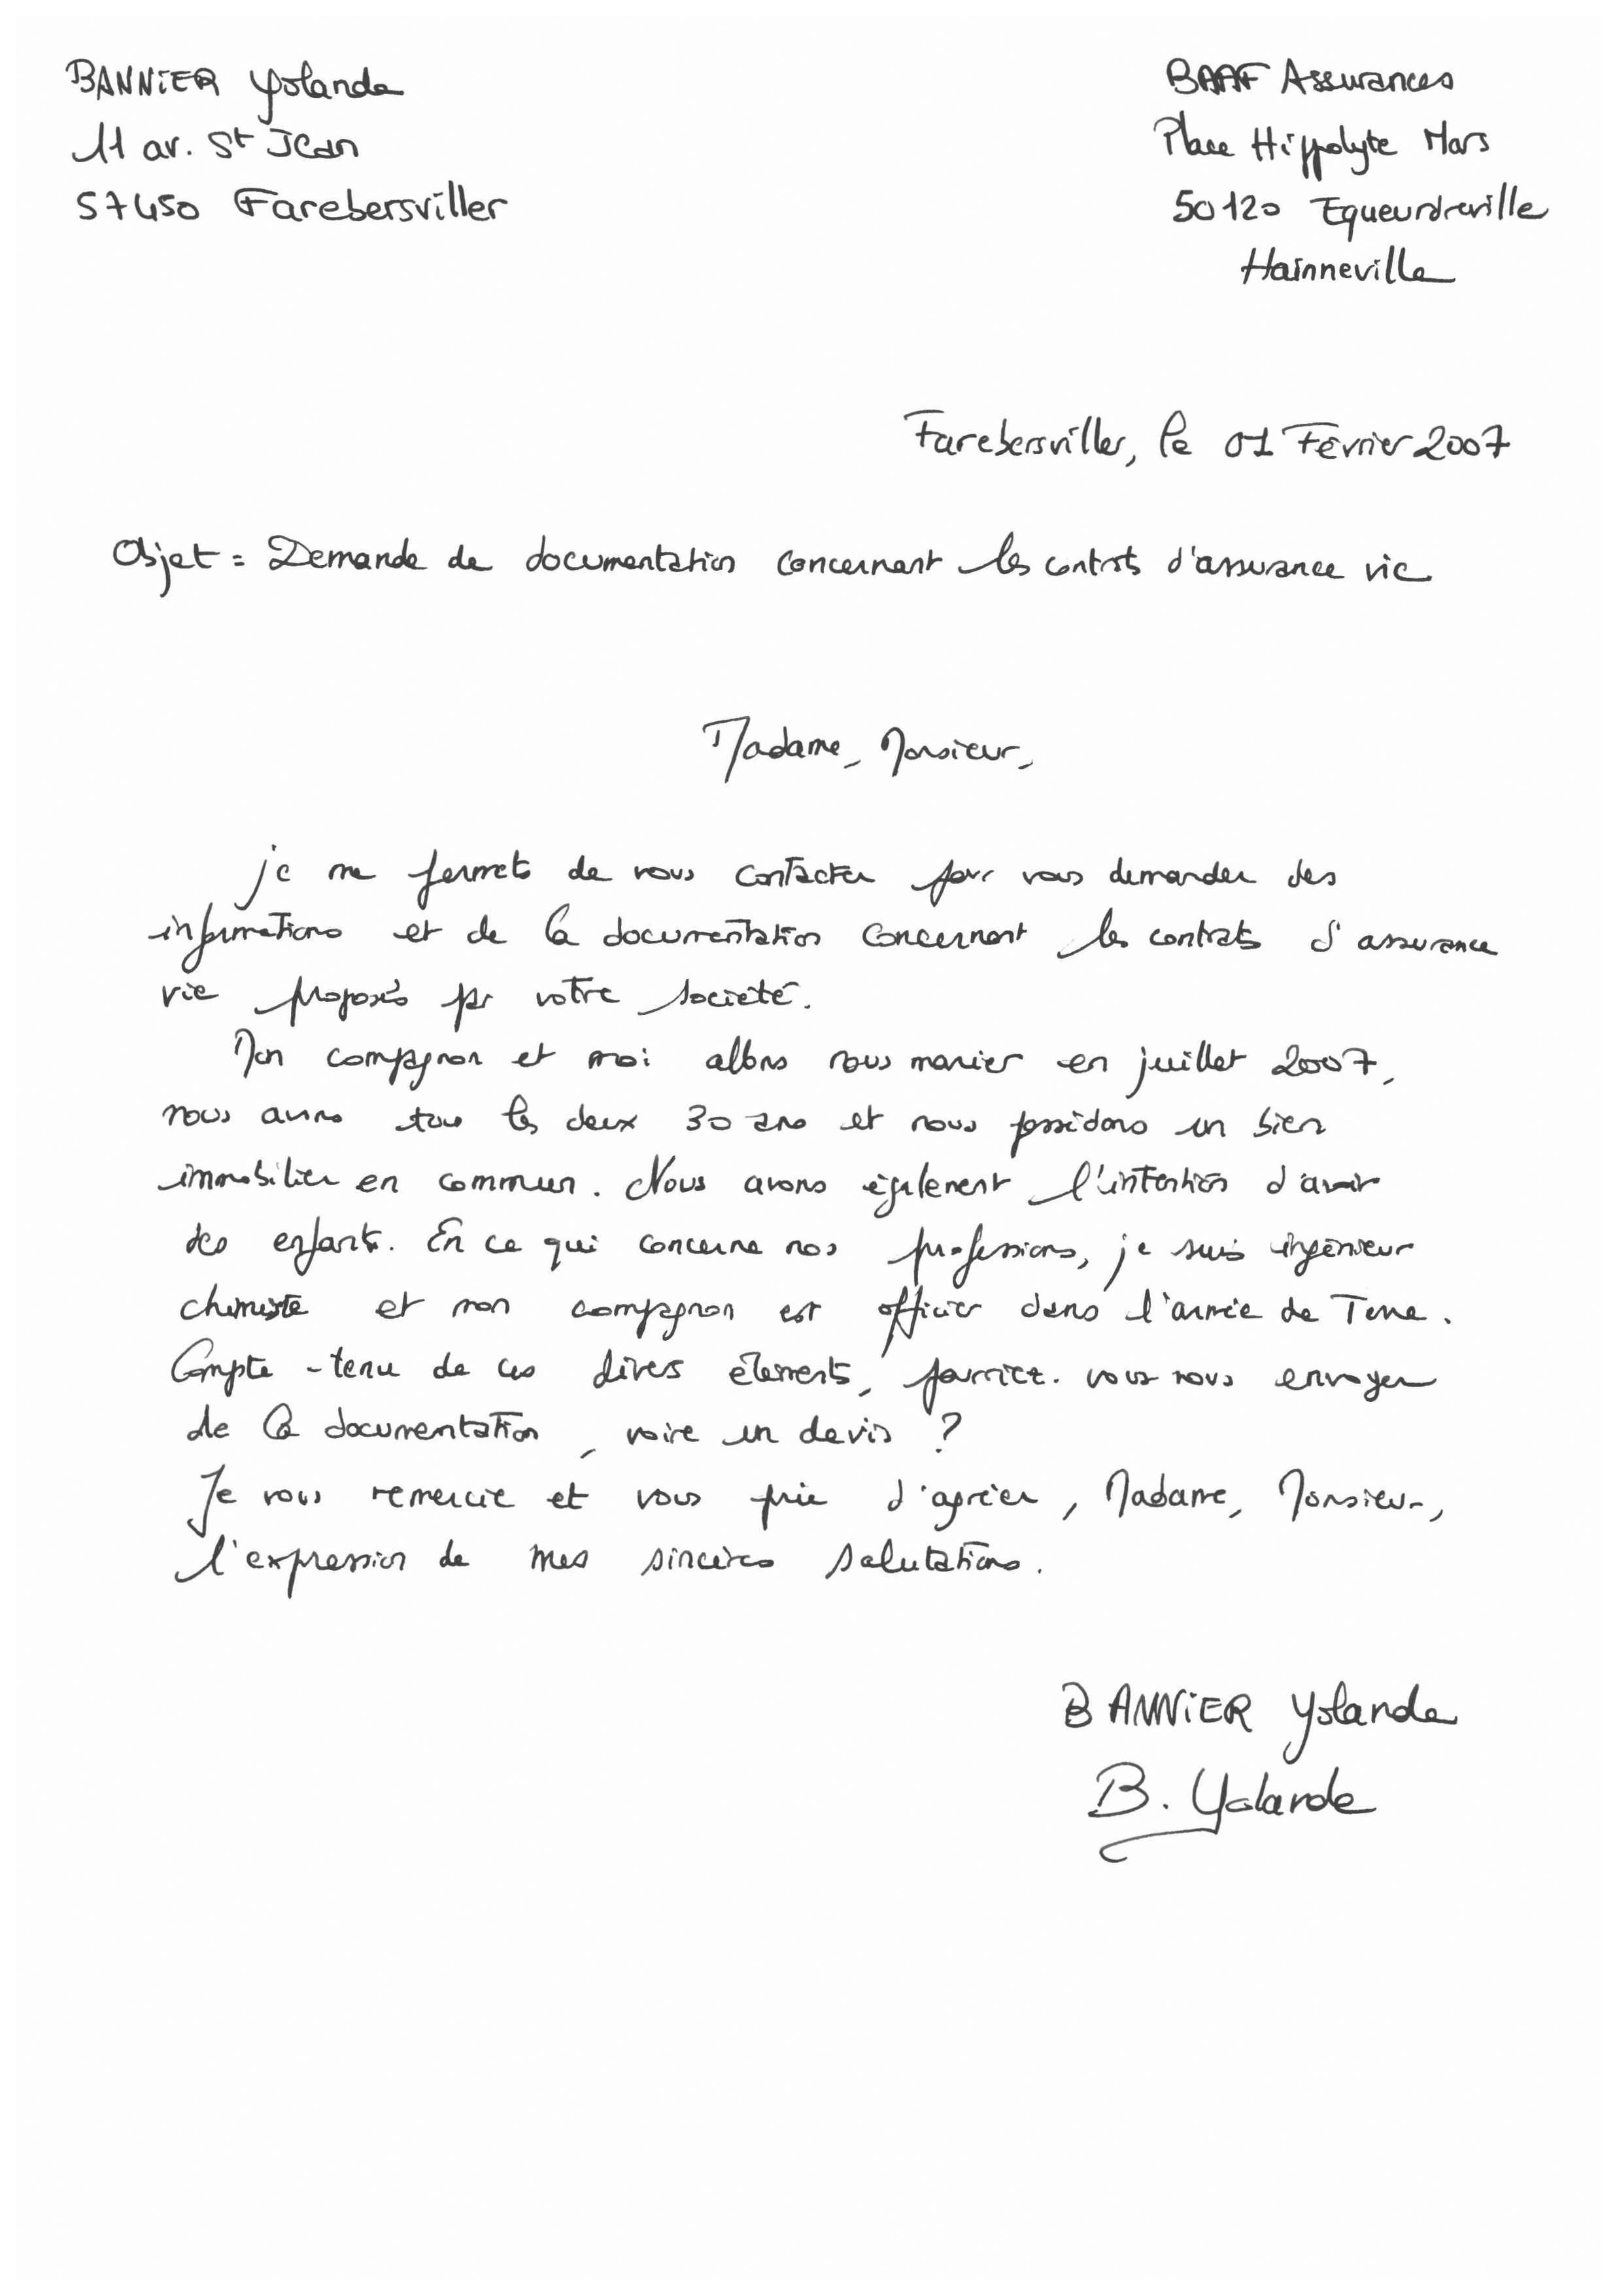 BANNIER Yolanda
11 av. St Jean
57450 Farebersviller
BAAF Assurances
Place Hippolyte Mars
50120 Equeurdreville
Hainneville
Farebersviller, le 01 Février 2007
Objet = Demande de documentation concernant les contrats d'assurance vie
Madame, Monsieur,
je me permets de vous contacter pour vous demander des
informations et de la documentation concernant les contrats d'assurance
vie proposés par votre société.
Mon compagnon et moi allons nous marier en juillet 2007,
nous avons tous les deux 30 ans et nous possédons un bien
immobilier en commun. Nous avons également l'intention d'avoir
des enfants. En ce qui concerne nos professions, je suis ingénieur
chimiste et mon compagnon est officier dans l'armée de Terre.
Compte-tenu de ces divers éléments, pourriez-vous nous envoyer
de la documentation, voire un devis ?
Je vous remercie et vous prie d'agréer, Madame, Monsieur,
l'expression de mes sincères salutations.
BANNIER Yolanda
B. Yolande